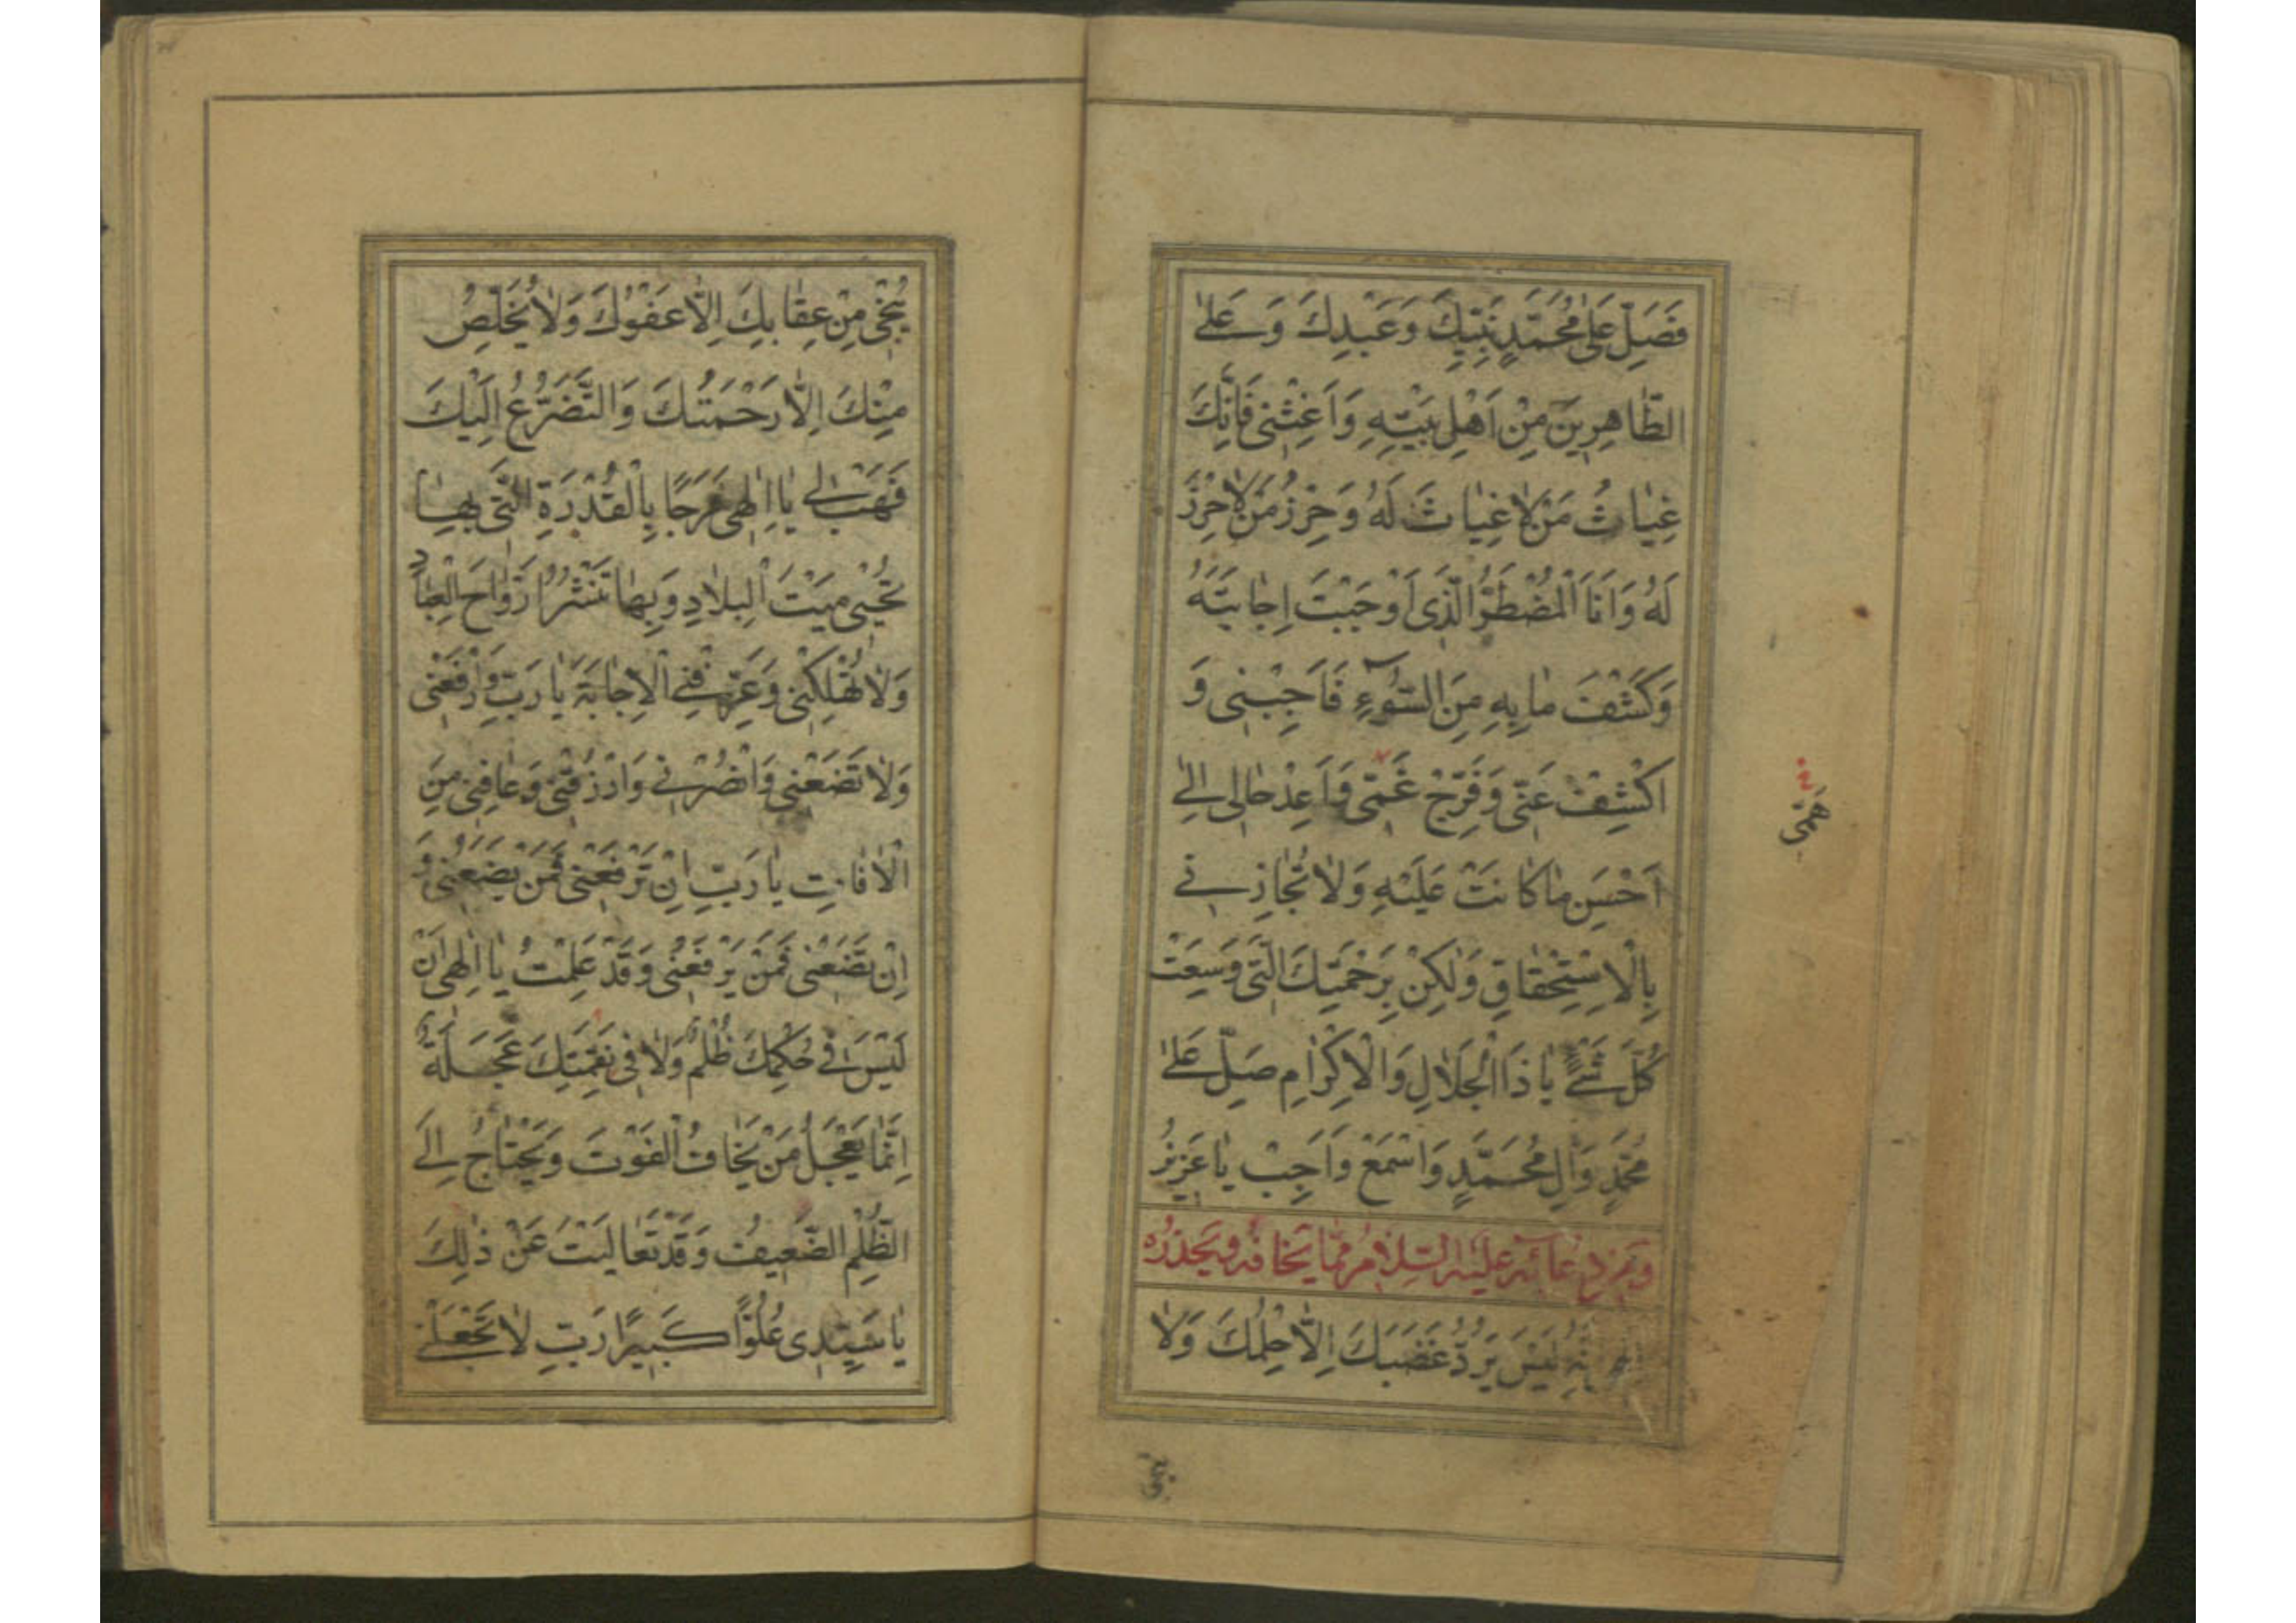 فَصَلِّ عَلٰى مُحَمَّدٍ نَبِيِّكَ وَعَبْدِكَ وَعَلٰى
الطّٰاهِرِيَن مِنْ اَهْلِ بَيْتِهِ وَاَغِثْنى فَاِنَّكَ
غِيٰاثُ مَنْ لٰا غِيٰاثَ لَهُ وَحِرْزُ مَنْ لٰا حِرْزَ
لَهُ وَاَنَا الْمُضْطَرُّ الَّذى اَوْجَبْتَ اِجٰابَتَهُ
وَكَشْفَ مٰا بِهِ مِنَ السُّوۤءِ فَاَجِبْنى وَ
اكْشِفْ عَنّى وَفَرِّجْ غَمّى وَاَعِدْ حٰالى اِلٰى
اَحْسَنِ مٰا كٰانَتْ عَلَيْهِ وَلٰا تُجٰازِنى
بِالْاِسْتِحْقٰاقِ وَلٰكِنْ بِرَحْمَتِكَ الَّتى وَسِعَتْ
كُلَّ شَىْءٍ يٰا ذَا الْجَلٰالِ وَالْاِكْرٰامِ صَلِّ عَلٰى
مُحَمَّدٍ وَاٰلِ مُحَمَّدٍ وَاسْمَعْ وَاَجِبْ يٰا عَزيزُ
وَمِنْ دُعٰائِهِ عَلَيْهِ السَّلٰامُ مِمّٰا يَخٰافُهُ وَيَحْذَرُهُ
اِنَّهُ لَيْسَ يَرُدُّ غَضَبَكَ اِلّٰا حِلْمُكَ وَلٰا
هَمّى
يُنْجى
يُنْجى مِنْ عِقٰابِكَ اِلّٰا عَفْوُكَ وَلٰا يُخَلِّصُ
مِنْكَ اِلّٰا رَحْمَتُكَ وَالتَّضَرُّعُ اِلَيْكَ
فَهَبْ لى يٰا اِلٰهى فَرَجًا بِالْقُدْرَةِ الَّتى بِهٰا
تُحْيى مَيْتَ الْبِلٰادِ وَبِهٰا تَنْشُرُ اَرْوٰاحَ الْعِبٰادِ
وَلٰا تُهْلِكْنى وَعَرِّفْنِى الْاِجٰابَةَ يٰا رَبِّ وَارْفَعْنى
وَلٰا تَضَعْنى وَانْصُرْنى وَارْزُقْنى وَعٰافِنى مِنَ
الْاٰفٰاتِ يٰا رَبِّ اِنْ تَرْفَعْنى فَمَنْ يَضَعُنى وَ
اِنْ تَضَعْنى فَمَنْ يَرْفَعُنى وَقَدْ عَلِمْتُ يٰا اِلٰهى اَنْ
لَيْسَ فى حُكْمِكَ ظُلْمٌ وَلٰا فى نَقِمَتِكَ عَجَلَةٌ
اِنَّمٰا يَعْجَلُ مَنْ يَخٰافُ الْفَوْتَ وَيَحْتٰاجُ اِلَى
الظُّلْمِ الضَّعيفُ وَقَدْ تَعٰالَيْتَ عَنْ ذٰلِكَ
يٰا سَيِّدى عُلُوًّا كَبيرًا رَبِّ لٰا تَجْعَلْنى